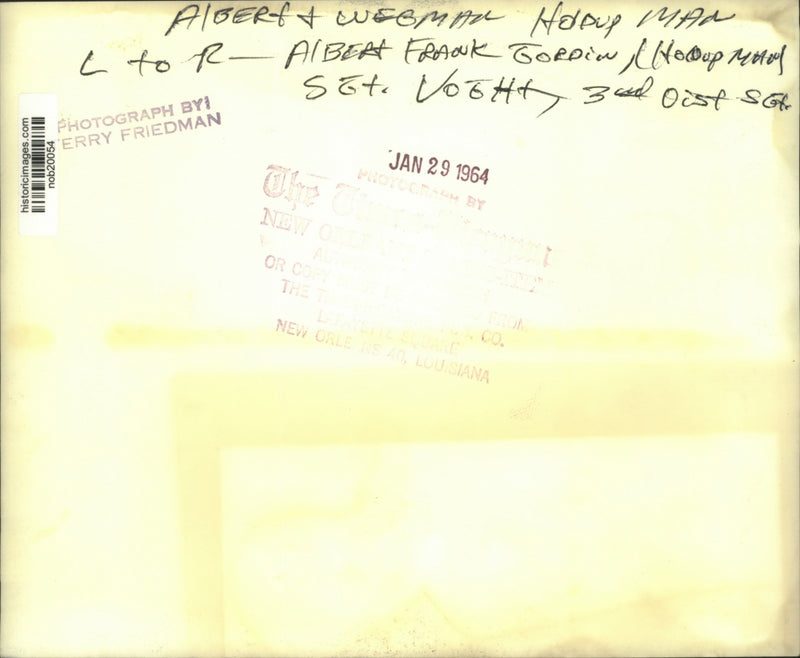 Albert & WEGMAN HOLDUP MAN
L to R — AlBERt FRANK GORDIN, (HOLDUP MAN)
SGt. VOEHt, 3rd Dist SGt.
PHOTOGRAPH BY:
ERRY FRIEDMAN
historicimages.com
nob20054
JAN 29 1964
PHOTOGRAPH BY
The
NEW ORLEANS
OR COPY MUST BE FROM
THE & CO.
LAFAYETTE SQUARE
NEW ORLEANS 40, LOUISIANA